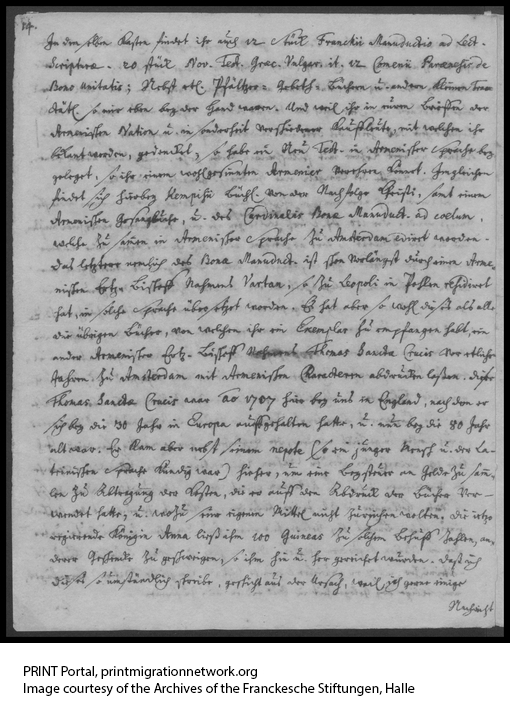 In dem selben Kasten findet ihr auch 12 Stück Franckii Manuductio ad Lect.
Scripturæ. 20 stück Nov. Test. Græc. Vulgar. it. 12 Comenii Parænesis de
Bono Unitatis; Nebst etl. Gebeth-Büchern u. andern kleinen Trac
tätl. so mir eben bey der Hand waren. Und weil ihr in euren Briefen der
Armenischen Nation u. in sonderheit verschiedener Kauffleute, mit welchen ihr
bekant worden, gedencket, so habe ein Neu Test. in Armenischer Sprache bey
geleget, so ihr einem wohlgesinneten Armenier verehren könnet. Ingleichen
findet sich hierbey Kempisii Büchl. von der Nachfolge Christi, samt einem
Armenischen Gesangbuche, u. des Cardinalis Bona Manuduct. ad coelum,
welche zusammen in Armenischer Sprache zu Amsterdam edirt worden.
Das letztere nemlich des Bona Manuduct. ist schon vorlängst durch einen Arme-
nischen Ertz-Bischoff Nahmens Vartan, so zu Leopoli in Pohlen residiret
hat, in solche Sprache übersetzet worden. Es hat aber so wohl dieses als alle
die übrigen Bücher, von welchen ihr ein Exemplar zu empfangen habt, ein
ander Armenischer Ertz-Bischoff Nahmens Thomas Sancta Crucis vor etlichen
Jahren zu Amsterdam mit Armenischen Characteren abdrucken lassen. dieser
Thomas Sancta Crucis war Ao 1707 hier bey uns in England, nachdem er
sich bey die 30 Jahr in Europa auffgehalten hatte, u. nun bey die 80 Jahr
alt war. Er kam aber nebst seinem nepote (so ein junger Mensch u. der La-
teinischen Sprache kündig war) hieher, um eine Beysteuer an Gelde zu sam-
len zu Abtragung der Kosten, die er auff den Abdruck der Bücher ver-
wendet hatte, u. wozu seine eigene Mittel nicht zureichen wolten. die itzo
regierende Königin Anna ließ ihm 100 Guineas zu solchem Behuff zahlen, an-
derer Geschencke zu geschweigen, so ihm hin u. her gereichet wurden. Daß ich
dieses so umständlich schreibe, geschicht aus der Ursach, weil ich gerne einige
Nachricht
PRINT Portal, printmigrationnetwork.org
Image courtesy of the Archives of the Franckesche Stiftungen, Halle